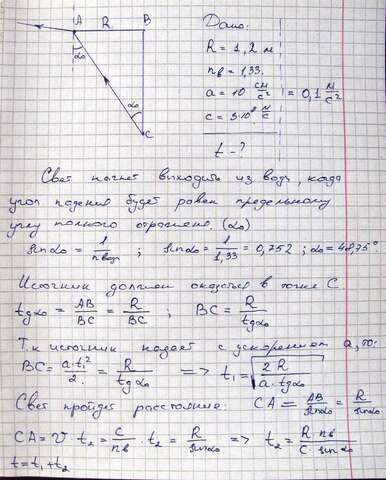 A R B
α₀
α₀
C
Дано:
R = 1,2 м
nв = 1,33.
a = 10 см/с² = 0,1 м/с²
c = 3·10⁸ м/с
t - ?
Свет начнет выходить из воды, когда
угол падения будет равен предельному
углу полного отражения. (α₀)
sinα₀ = 1/nвод ; sinα₀ = 1/1,33 = 0,752 ; α₀ = 48,75°
Источник должен оказаться в точке C.
tgα₀ = AB/BC = R/BC ; BC = R/tgα₀
Т.к источник падает с ускорением a, то:
BC = a·t₁²/2 = R/tgα₀ => t₁ = √(2R/a·tgα₀)
Свет пройдет расстояние: CA = AB/sinα₀ = R/sinα₀
CA = v·t₂ = c/nв · t₂ = R/sinα₀ => t₂ = R·nв/c·sinα₀
t = t₁ + t₂